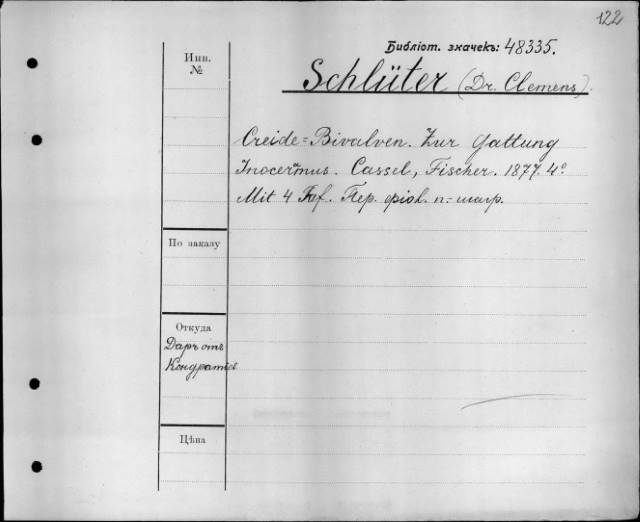 122
Библіот. значекъ: 48335.
Инв.
№
Schlüter (Dr. Clemens).
Creide=Bivalven. Zur Gattung
Inoceramus. Cassel, Fischer. 1877. 4º
Mit 4 Taf. Пер. фіол. п.-шагр.
По заказу
Откуда
Даръ отъ
Кондратьев
Цѣна